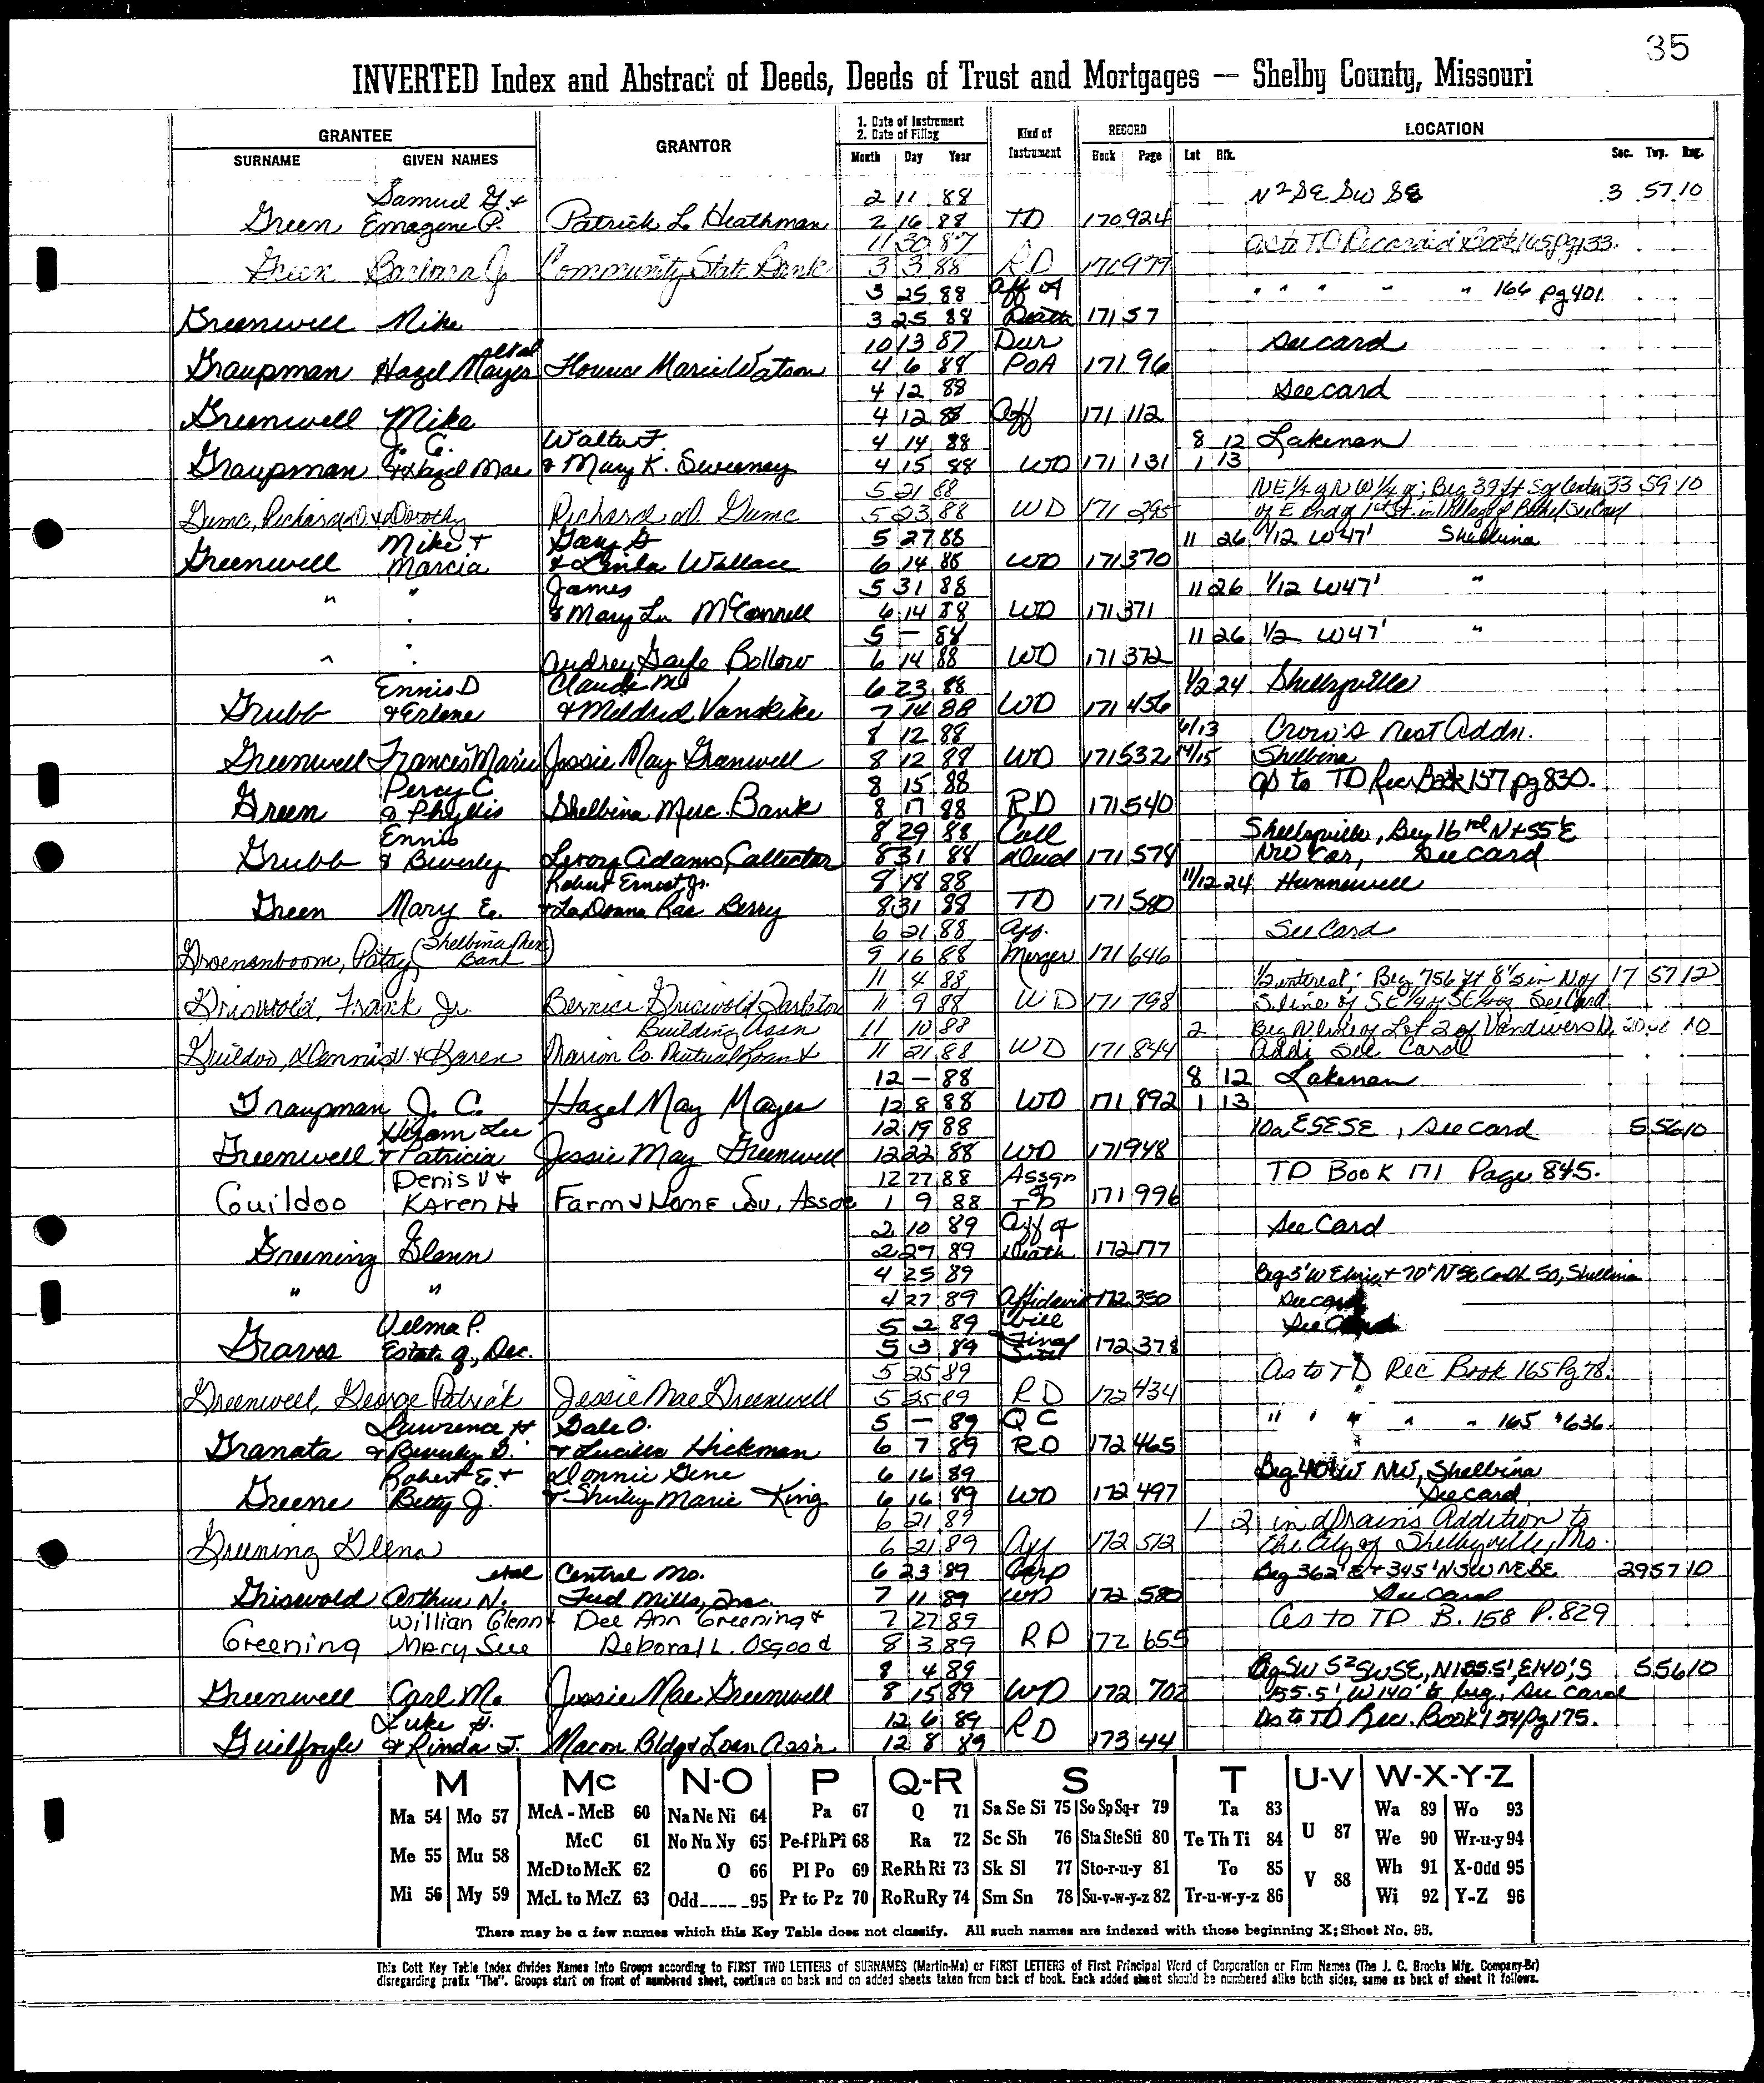 35
INVERTED Index and Abstract of Deeds, Deeds of Trust and Mortgages — Shelby County, Missouri
GRANTEE GRANTOR 1. Date of Instrument 2. Date of Filing Kind of Instrument RECORD LOCATION
SURNAME GIVEN NAMES Month Day Year Book Page Lot Blk. Sec. Twp. Rng.
Samuel G. + 2 11 88 N2 SE SW SE 3 57 10
Green Emagene P. Patrick L. Heathman 2 16 88 TD 170 924
11 30 87 as to TD Recorded Book 165 pg 133.
Green Barbara J. Community State Bank 3 3 88 RD 170 979
3 25 88 Aff of " " " " " 166 pg 401
Greenwell Mike 3 25 88 Death 171 57
etal 10 13 87 Dur See card
Graupman Hazel Mayes Florence Marie Watson 4 6 88 POA 171 96
4 12 88 See card
Greenwell Mike 4 12 88 Aff 171 112
J. C. Walter F. 4 14 88 8 12 Lakenan
Graupman & Hazel Mae & Mary K. Sweeney 4 15 88 WD 171 131 1 13
5 21 88 NE 1/4 of NW 1/4 of; Beg 39 ft S of Center 33 59 10
Richard D. & Dorothy Richard D. 5 23 88 WD 171 295 of E end of 1st St. in Village of Bethel See Card
Mike + Gary G 5 27 88 11 26 1/12 W47' Shelbina
Greenwell Marcia & Linda Wallace 6 14 88 WD 171 370
" " James 5 31 88 11 26 1/12 W47' "
& Mary Lu McConnell 6 14 88 WD 171 371
5 — 88 11 26 1/2 W47' "
" " Audrey Gayle Bollow 6 14 88 WD 171 372
Ennis D Claude M 6 23 88 1/2 24 Shelbyville
Grubb & Erlene & Mildred Vanskike 7 14 88 WD 171 456
8 12 88 6/13 Crow's Nest Addn.
Greenwell Frances Marie Jessie May Greenwell 8 12 88 WD 171 532 14/15 Shelbina
Percy C 8 15 88 as to TD Rec Book 157 pg 830.
Green & Phyllis Shelbina Merc. Bank 8 17 88 RD 171 540
Ennis 8 29 88 Coll Shelbyville, Beg 16 rd N + 55' E
Grubb & Beverly Adams, Collector 8 31 88 Deed 171 578 NW Cor, See card
Robert Ernest Jr. 8 18 88 11/12 24 Hunnewell
Green Mary E. & LaDonna Rae Berry 8 31 88 TD 171 580
6 21 88 See Card
Groenenboom, Patsy (Shelbina Merc Bank) 9 16 88 Merger 171 646
11 4 88 1/2 interest; Beg 756 ft 8 1/2 in N of 17 57 12
Griswold, Frank Jr. Bernice Griswold Tarleton 11 9 88 WD 171 798 S. line of SE 1/4 of SE 1/4 of See Card
Building Assn 11 10 88 2 Beg N line of Lot 2 of Vandivers 10
Guildoo, Dennis V. & Karen Marion Co. Mutual Loan & 11 21 88 WD 171 844 Addi See Card
12 — 88 8 12 Lakenan
Graupman J. C. Hazel May Mayes 12 8 88 WD 171 892 1 13
Hiram Lee 12 19 88 10a ESESE, See card 5 56 10
Greenwell & Patricia Jessie May Greenwell 12 22 88 WD 171 948
Denis V + 12 27 88 Assgn TD Book 171 Page 845.
Guildoo Karen H Farm & Home Sav. Assoc 1 9 88 of TD 171 996
2 10 89 Aff of See Card
Greening Glenn 2 27 89 Death 172 177
4 25 89 Beg 3' W + 70' N SE Cor 50, Shelbina
" " 4 27 89 Affidavit 172 350 See card
Velma P. 5 2 89 Will See Card
Graves Estate of, Dec. 5 3 89 Final 172 378
5 25 89 As to TD Rec Book 165 Pg 78.
Greenwell, George Patrick Jessie Mae Greenwell 5 25 89 RD 172 434
Lawrence H Dale O. 5 — 89 QC " " " " " 165 " 636.
Granata & Beverly & Lucille Hickman 6 7 89 RD 172 465
Robert E. + Donnie Gene 6 16 89 Beg 40' W NW, Shelbina
Greene Betty J. & Shirley Marie King 6 16 89 WD 172 497 See card
6 21 89 1 2 in Drains Addition to
Greening Glenn 6 21 89 Aff 172 512 the City of Shelbyville, Mo.
etal Central Mo. 6 23 89 Corp Beg 362' E + 345' N SW NE SE 29 57 10
Griswold Arthur N. Feed Mills, Inc. 7 11 89 WD 172 580 See Card
Willian Glenn + Dee Ann Greening + 7 27 89 as to TD B. 158 P. 829
Greening Mary Sue Deborah L. Osgood 8 3 89 RD 172 655
8 4 89 Beg SW S2 SW SE, N 155.5', E 140', S 5 56 10
Greenwell Carl M. Jessie Mae Greenwell 8 15 89 WD 172 702 155.5', W 140' to beg, See card
Luke H. 12 6 89 RD As to TD Rec. Book 154 pg 175.
Guilfoyle & Rinda J. Macon Bldg & Loan Ass'n 12 8 89 173 44
M Mc N-O P Q-R S T U-V W-X-Y-Z
Ma 54 Mo 57 McA - McB 60 Na Ne Ni 64 Pa 67 Q 71 Sa Se Si 75 So Sp Sq-r 79 Ta 83 U 87 Wa 89 Wo 93
Me 55 Mu 58 McC 61 No Nu Ny 65 Pe-f Ph Pi 68 Ra 72 Sc Sh 76 Sta Ste Sti 80 Te Th Ti 84 We 90 Wr-u-y 94
McD to McK 62 O 66 Pl Po 69 Re Rh Ri 73 Sk Sl 77 Sto-r-u-y 81 To 85 V 88 Wh 91 X-Odd 95
Mi 56 My 59 McL to McZ 63 Odd 95 Pr to Pz 70 Ro Ru Ry 74 Sm Sn 78 Su-v-w-y-z 82 Tr-u-w-y-z 86 Wi 92 Y-Z 96
There may be a few names which this Key Table does not classify. All such names are indexed with those beginning X; Sheet No. 95.
This Cott Key Table Index divides Names Into Groups according to FIRST TWO LETTERS of SURNAMES (Martin-Ma) or FIRST LETTERS of First Principal Word of Corporation or Firm Names (The J. C. Brocks Mfg. Company-Br)
disregarding prefix "The". Groups start on front of numbered sheet, continue on back and on added sheets taken from back of book. Each added sheet should be numbered alike both sides, same as back of sheet it follows.